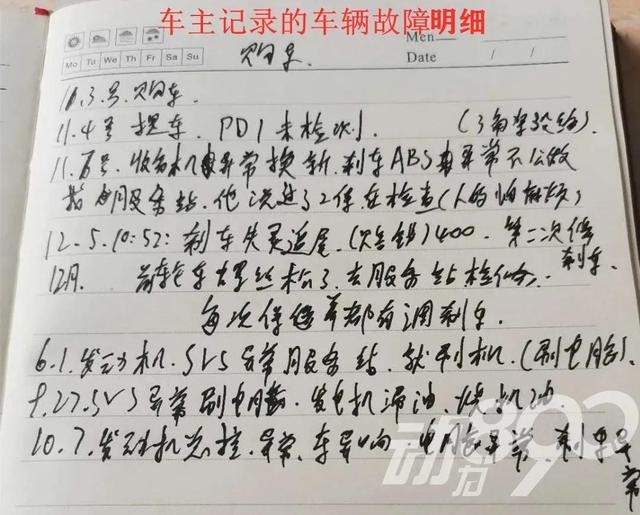 车主记录的车辆故障明细
Mo Tu We Th Fr Sa Su
Memo
Date / /
购车
11.3.号.购车.
11.4号 提车. PDI未检测. (三角架没给).
11.6号.收音机异常换新.刹车ABS异常不公放
服务站.他说过了2保在检查(人的怕麻烦)
12.5.10:52:刹车失灵追尾.400.第二次修刹车.
12月. 前轮车螺丝松了.去服务站检修.
每次保养都有调刹车.
6.1.发动机.SVS异常服务站.就刷机.(刷电脑).
9.27.SVS异常刷电脑.发电机漏油.烧机油.
10.7.发动机.异常.车异响.电脑异常.刹车异常
动力890